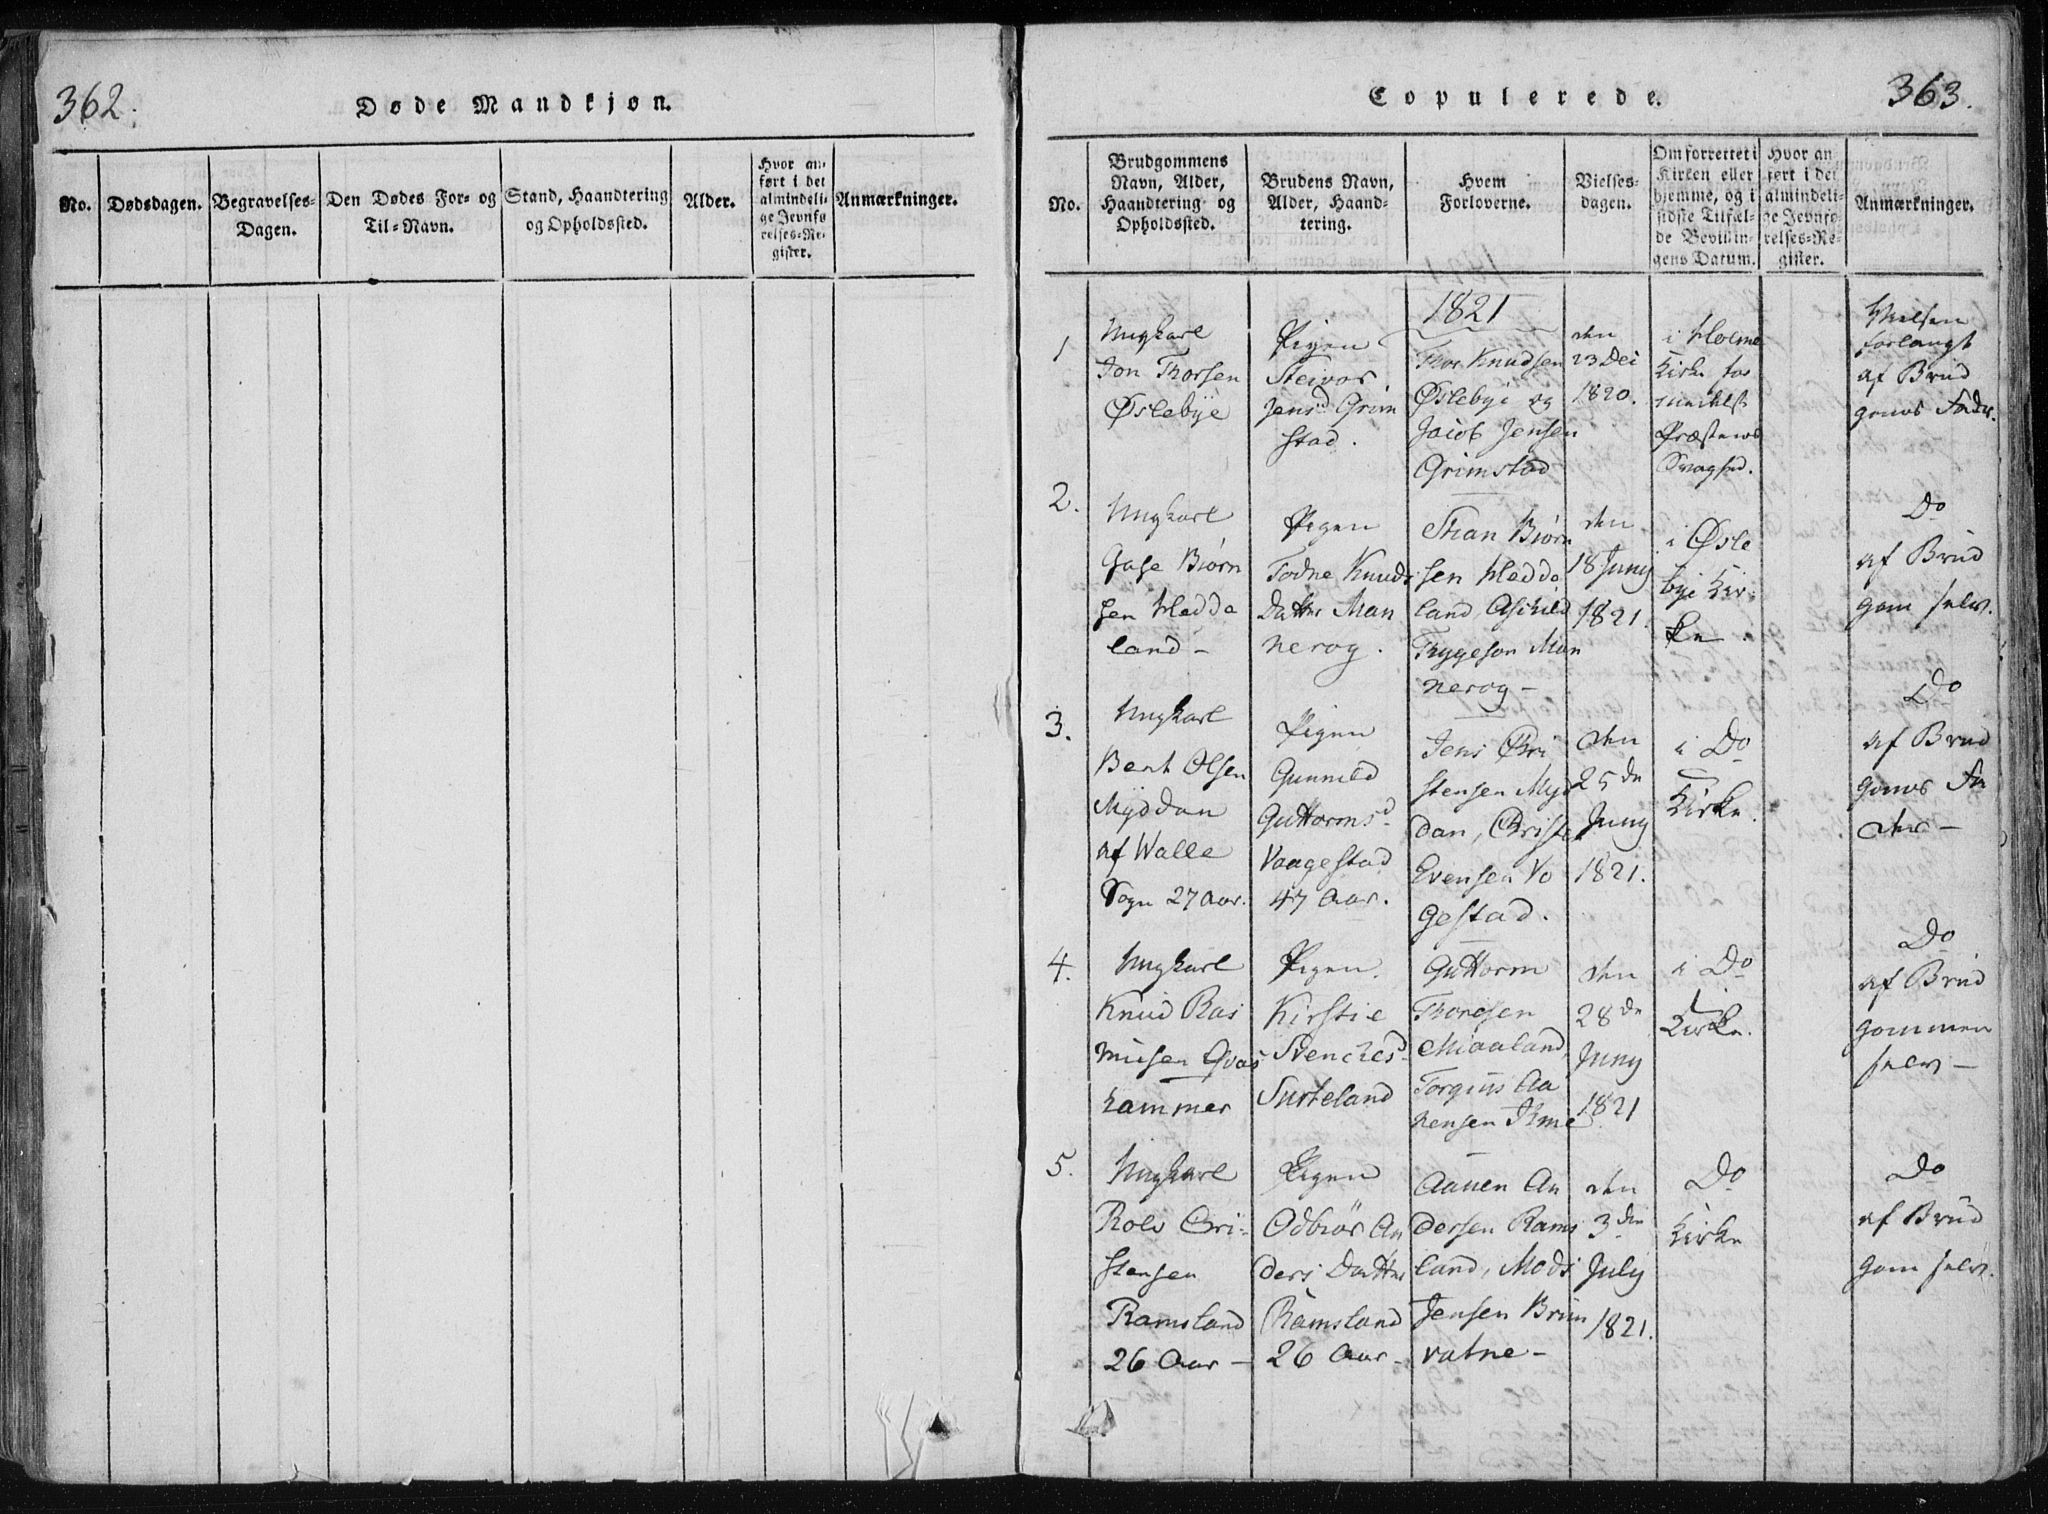 362.
Døde Mandkjøn.
No.
Dødsdagen.
Begravelses-
Dagen.
Den Dødes For- og
Til-Navn.
Stand, Haandtering
og Opholdssted.
Alder.
Hvor an-
ført i det
almindeli-
ge Jevnfø
relses-Re-
gister.
Anmærkninger.
Copulerede.
363.
No.
Brudgommens
Navn, Alder,
Haandtering og
Opholdssted.
Brudens Navn,
Alder, Haand-
tering.
Hvem
Forloverne.
Vielses-
dagen.
Om forrettet i
Kirken eller
hjemme, og i
sidste Tilfæl-
de Bevillin-
gens Datum.
Hvor an
ført i det
almindeli-
ge Jevnfø-
relses-Re-
gister.
Anmærkninger.
1821
1
Ungkarl
Jon Thorsen
Øslebÿe
Pigen
Steivor
Jensd Grim
stad.
Thor Knudsen
Øslebÿe og
Jacob Jensen
Grimstad
den
23 Dec
1820.
i Holme
Kirke for
Præstens
Svaghed.
Vielsen
forlangt
af Brud
goms Fader.
2.
Ungkarl
Gase Biørn
sen Hedde
land-
Pigen
Todne Knuds
Datter Man
nerog.
Stian Biørn
sen Hedde
land, Aschild
Thygeson Man
nerog-
den
18 Juny
1821.
i Øsle
bye Kir-
ke.
Do
af Brud
gom selv.
3.
Ungkarl
Bent Olsen
Myddan
af Walle
Sogn 27 Aar.
Pigen
Gunnild
Guttormsd
Vaagestad
47 Aar.
Jens Chri
stensen Myd
dan, Christen
Evensen Vo
gestad.
den
25de
Juny
1821.
i Do
Kirke.
Do
af Brud
goms Fa
der-
4.
Ungkarl
Knud Ras
musen Qvas
hammer
Pigen.
Kirstie
Svenches d
Surteland
Guttorm
Thoresen
Miaaland,
Torgius Aa
nensen Ihme
den
28de
Juny
1821
i Do
Kirke.
Do
af Brud
gommen
selv-
5.
Ungkarl
Rolv Cri-
stensen
Ramsland
26 Aar-
Pigen
Odbiør An
ders Datter
Ramsland
26 Aar-
Aanen An
dersen Rams
land, Mads
Jensen Brun
vatne-
den
3die
July
1821.
Do
Kirke
Do
af Brud
gom selv.